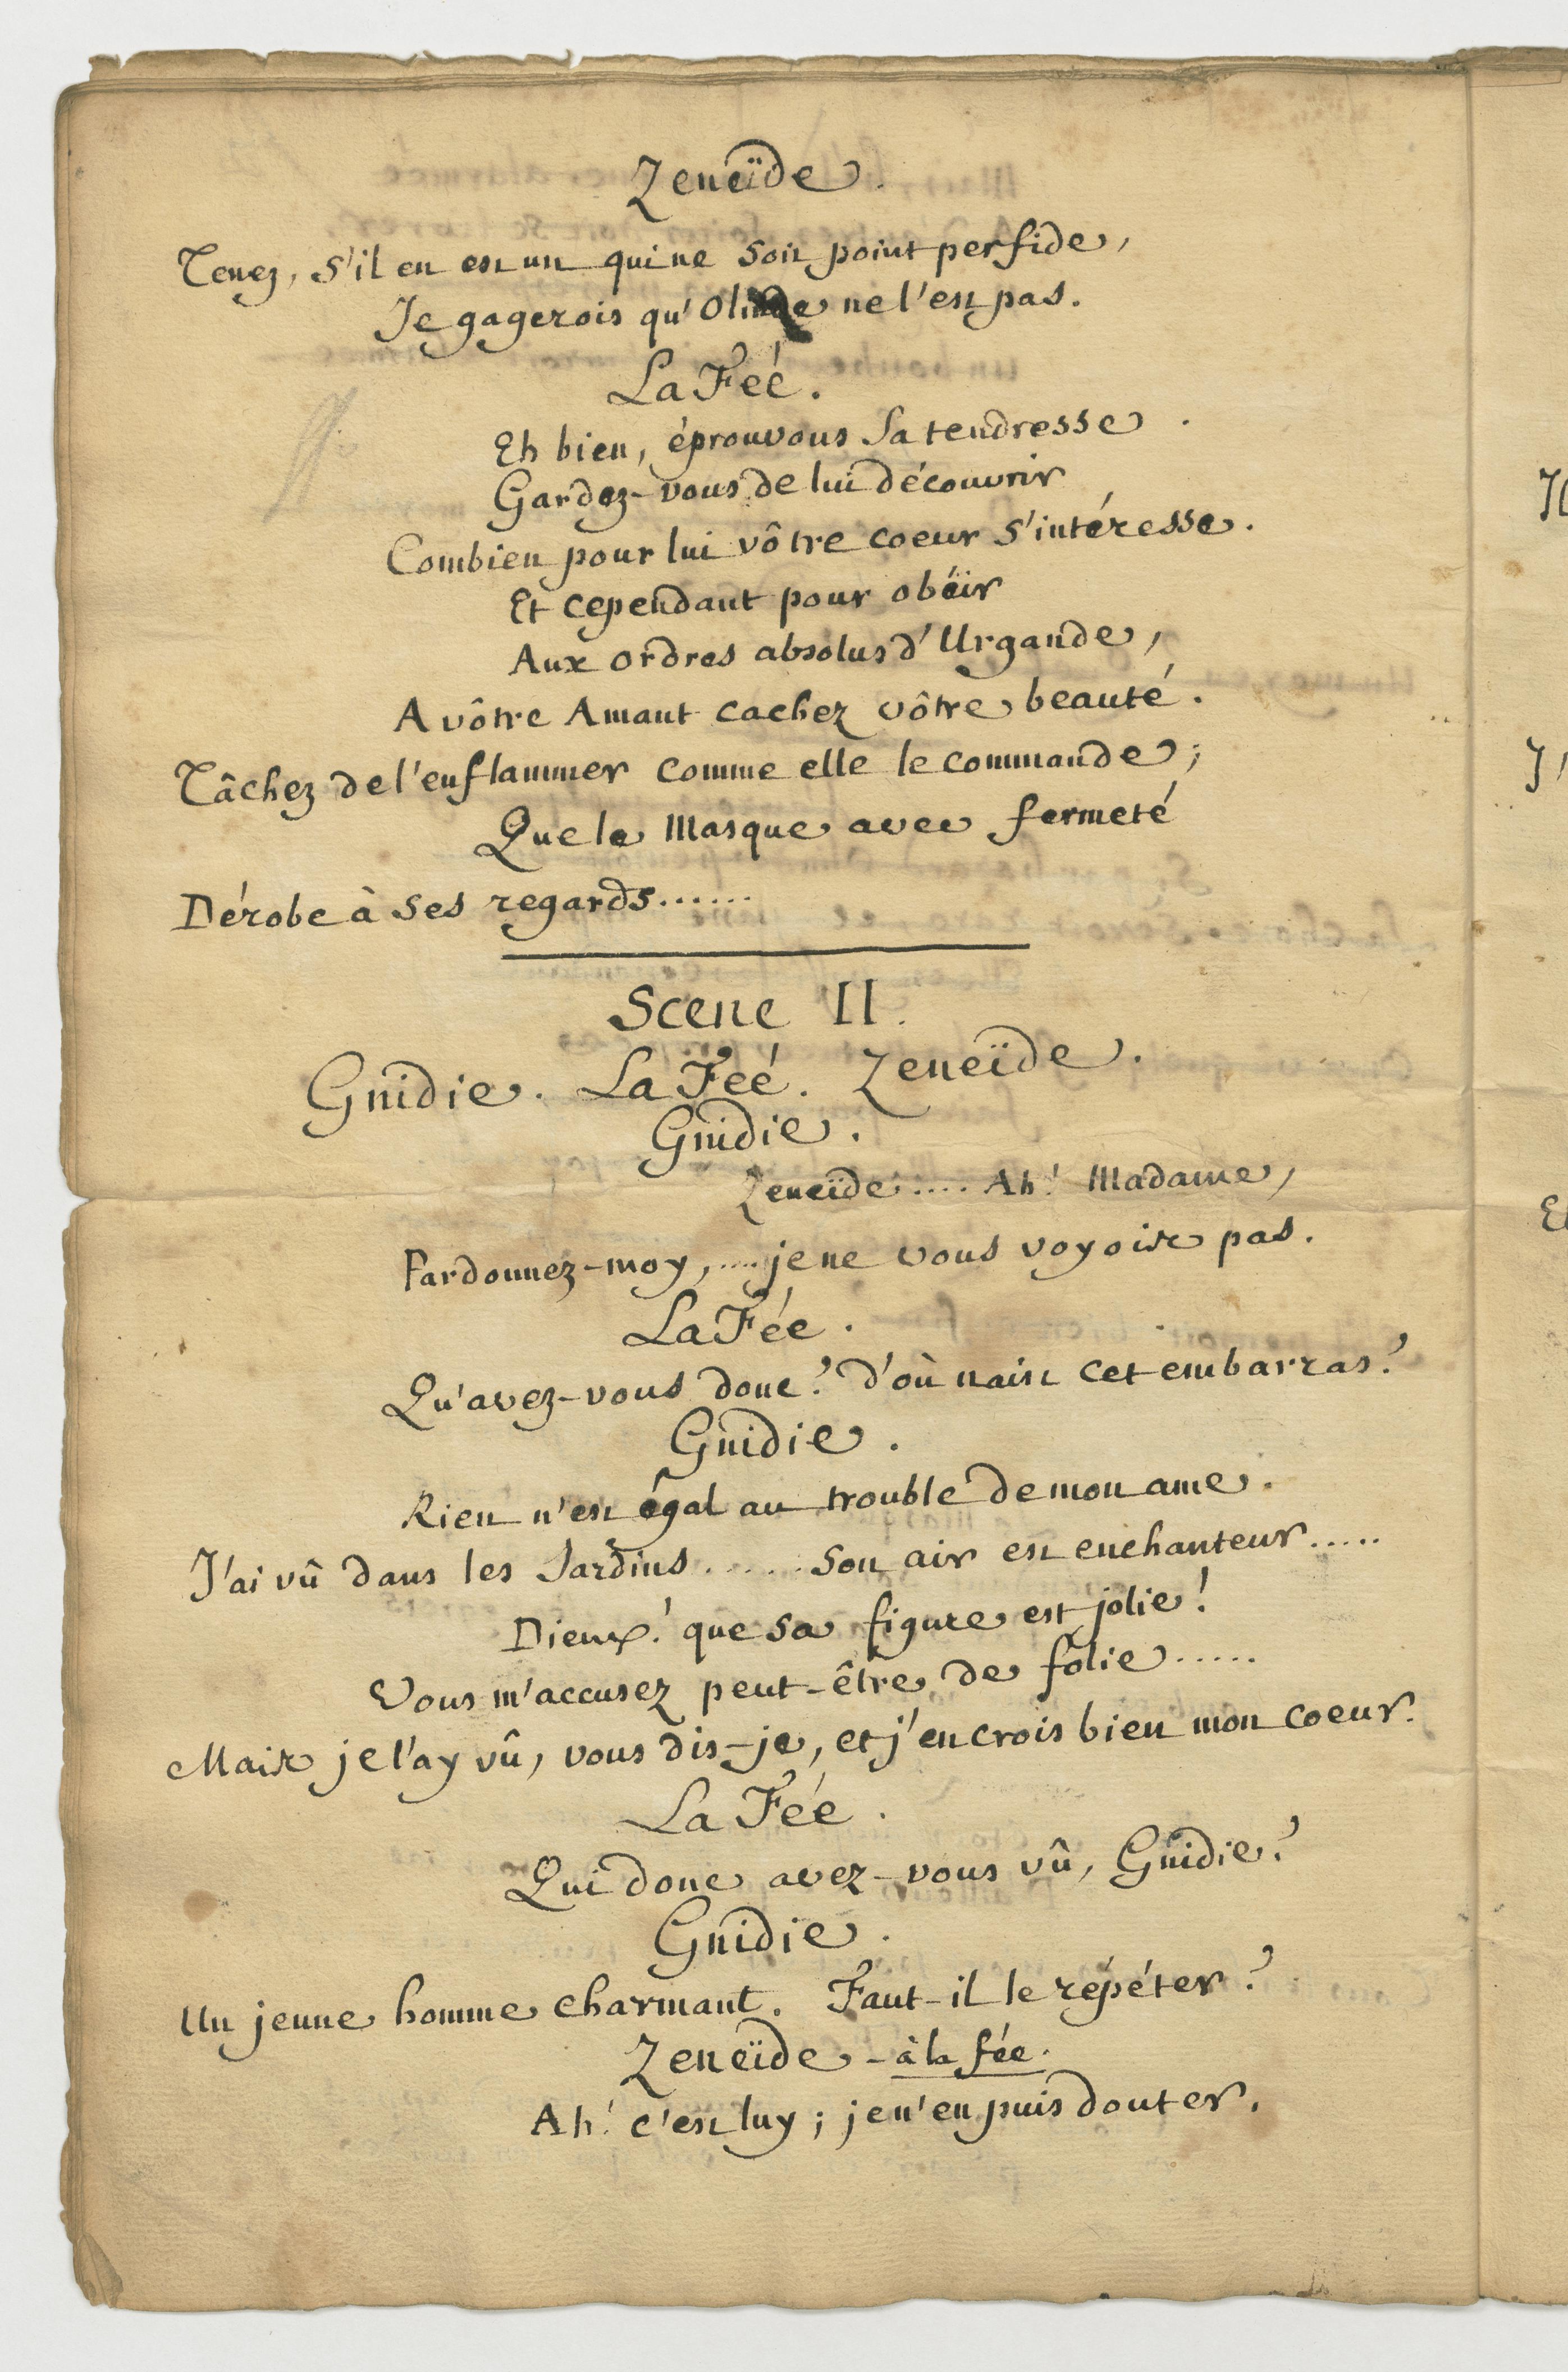 Zeneïde.
Tenez, s'il en est un qui ne soit point perfide,
Je gagerois qu'Olinde ne l'est pas.
La Feé.
Eh bien, éprouvons sa tendresse.
Gardez-vous de lui découvrir
Combien pour lui vôtre coeur s'intéresse.
Et cependant pour obéir
Aux ordres absolus d'Urgande,
A vôtre Amant cachez vôtre beauté.
Tâchez de l'enflammer comme elle le commande;
Que le Masque avec fermeté
Dérobe à ses regards......
Scene II.
Gnidie. La Feé. Zeneïde.
Gnidie.
Zeneïde.... Ah! Madame,
Pardonnez-moy,.... je ne vous voyois pas.
La Fée.
Qu'avez-vous donc? d'où naist cet embarras?
Gnidie.
Rien n'est égal au trouble de mon ame.
J'ai vû dans les Jardins...... son air est enchanteur.....
Dieux! que sa figure est jolie!
Vous m'accusez peut-être de folie.....
Mais je l'ay vû, vous dis-je, et j'en crois bien mon coeur.
La Fée.
Qui donc avez-vous vû, Gnidie?
Gnidie.
Un jeune homme charmant. Faut-il le répéter?
Zeneïde - à la fée.
Ah! c'est luy; je n'en puis douter.